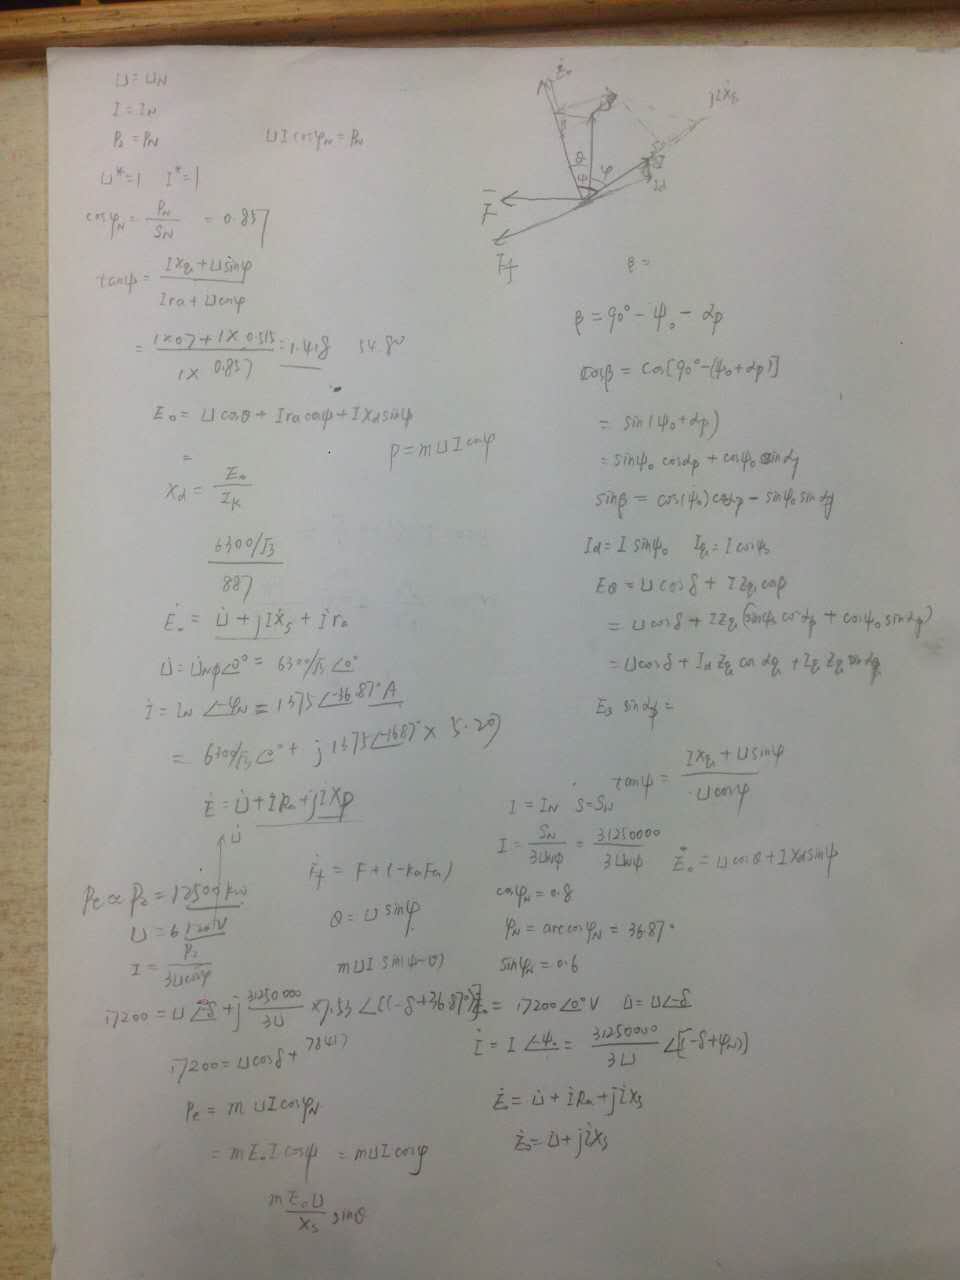 U = U_N
I = I_N
P₂ = P_N
U I cosφ_N = P_N
U* = 1 I* = 1
cosφ_N = P_N / S_N = 0.857
tanψ = (I X_q + U sinφ) / (I ra + U cosφ)
= (1×0.7 + 1×0.515) / (1×0.857) = 1.418 54.8°
E₀ = U cosθ + I ra cosψ + I X_d sinψ
=
P = m U I cosφ
X_d = E₀ / I_K
6300/√3 / 887
Ė₀ = U̇ + jİX_s + İ ra
U̇ = U̇_Nφ∠0° = 6300/√3 ∠0°
İ = I_N ∠-φ_N = 1375∠-36.87° A
= 6300/√3 ∠0° + j 1375∠-36.87° × 5.20
Ė = U̇ + İRa + jİX_p
U̇
P_e ∝ P₂ = 12500 kW
I = P₂ / 3U cosφ
Ḟ_f = F + (-kaFa)
Q = U sinφ
m U I sin(ψ-θ)
17200 = U∠-δ + j 31250000 / 3U × 7.53 ∠[(-δ+36.87°)]
17200 = U cosδ + 78417
P_e = m U I cosφ_N
= m E₀ I cosψ = m U I cosφ
m E₀ U / X_s sinθ
Ė₀
jİX_q
İ
I_d
θ
ψ
φ
F̄
F̄_f
β =
β = 90° - ψ₀ - α_p
cosβ = cos[90° - (ψ₀ + α_p)]
= sin(ψ₀ + α_p)
= sinψ₀ cosα_p + cosψ₀ sinα_p
sinβ = cos(ψ₀) cosα_p - sinψ₀ sinα_p
I_d = I sinψ₀ I_q = I cosψ₀
E_θ = U cosδ + I Z_q cosβ
= U cosδ + I Z_q (sinψ₀ cosα_p + cosψ₀ sinα_p)
= U cosδ + I_d Z_q cosα_q + I_q Z_q sinα_q
sinα_p =
tanψ = (I X_q + U sinφ) / U cosφ
I = I_N S = S_N
I = S_N / 3U_Nφ = 31250000 / 3U_Nφ
Ė₀ = U cosθ + I X_d sinψ
cosφ_N = 0.8
φ_N = arccosφ_N = 36.87°
sinφ_N = 0.6
Ė₀ = 17200∠0° V U̇ = U∠-δ
İ = I∠-ψ₀ = 31250000 / 3U ∠[-(δ+φ_N)]
Ė₀ = U̇ + İRa + jİX_s
Ė₀ = U̇ + jİX_s